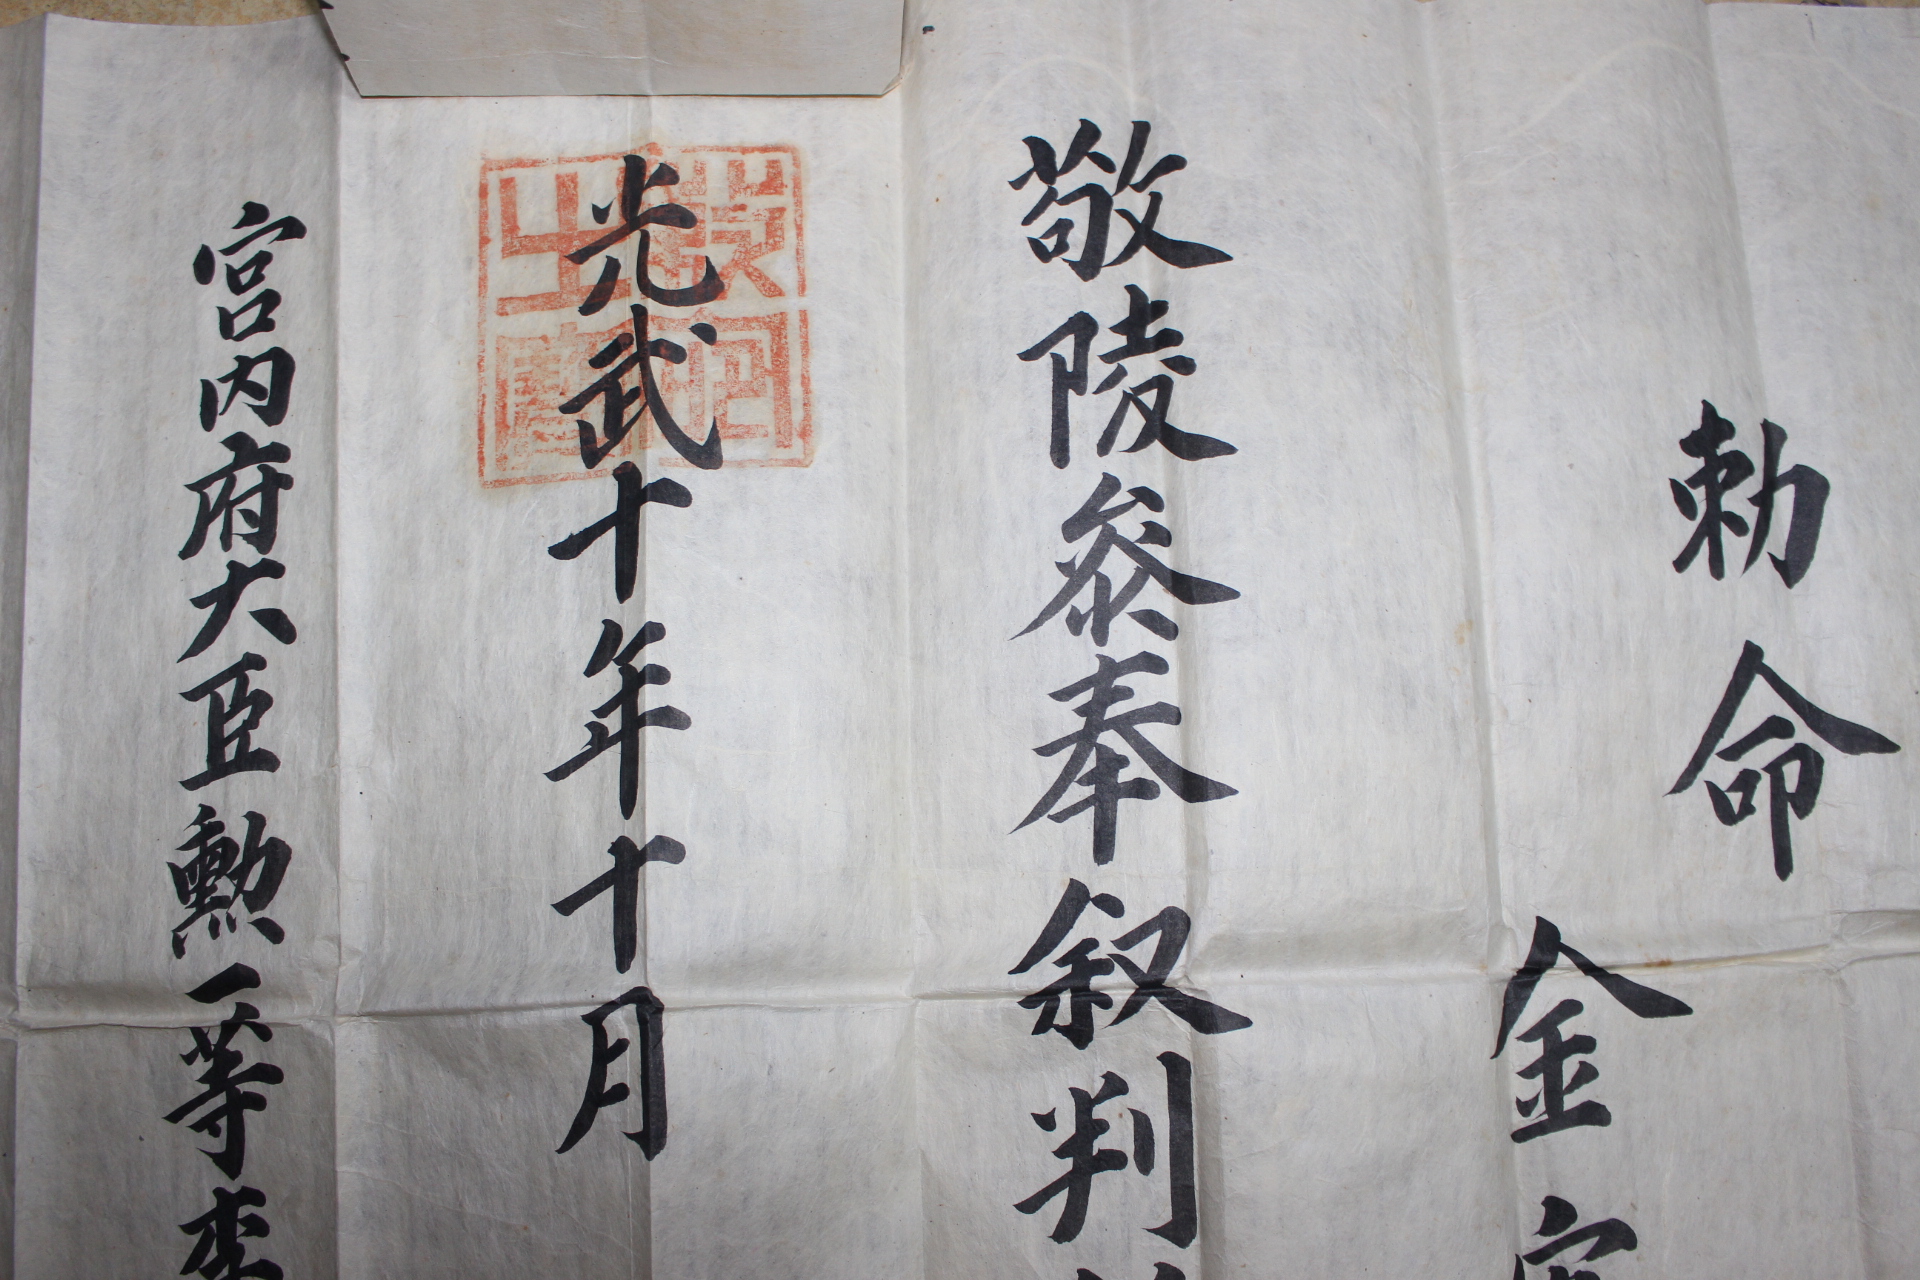 勅命
金
敬陵叅奉叙判
光武十年十月
宮内府大臣勲一等李